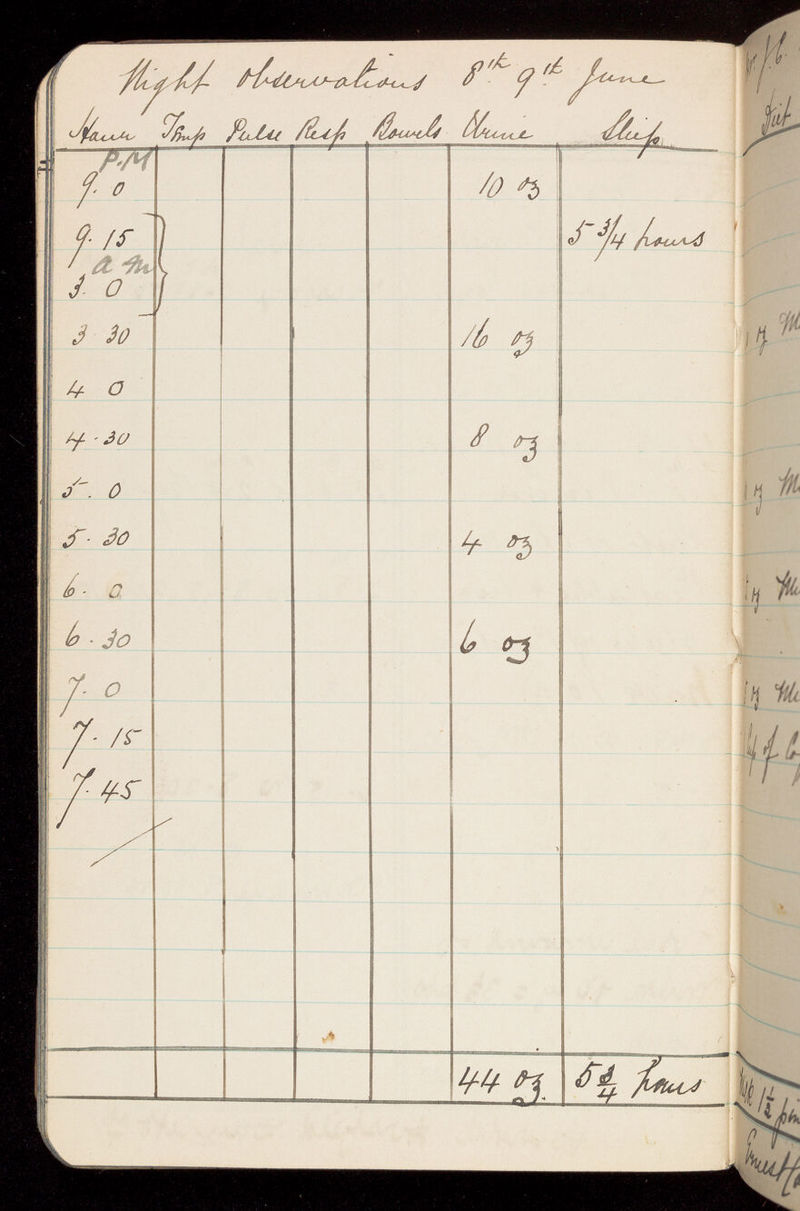 Night Observations 8th 9th June
Hour Temp Pulse Resp Bowels Urine Sleep
P.M
9. 0 10 oz
9. 15 5 3/4 hours
a m
3. 0
3 30 16 oz
4 0
4 - 30 8 oz
5. 0
5. 30 4 oz
6. 0
6. 30 6 oz
7. 0
7. 15
7. 45
44 oz. 5 3/4 hours
Diet
oz
oz
oz
oz
of
1 1/2
Ernest